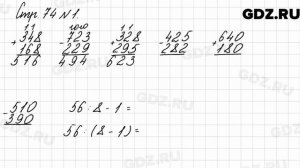 GDZ.RU
Стр. 74 N1.
+348 168 516
-723 229 494
+328 295 623
-425 282
+640 180
-510 390
56 : 8 - 1 =
56 : (8 - 1) =